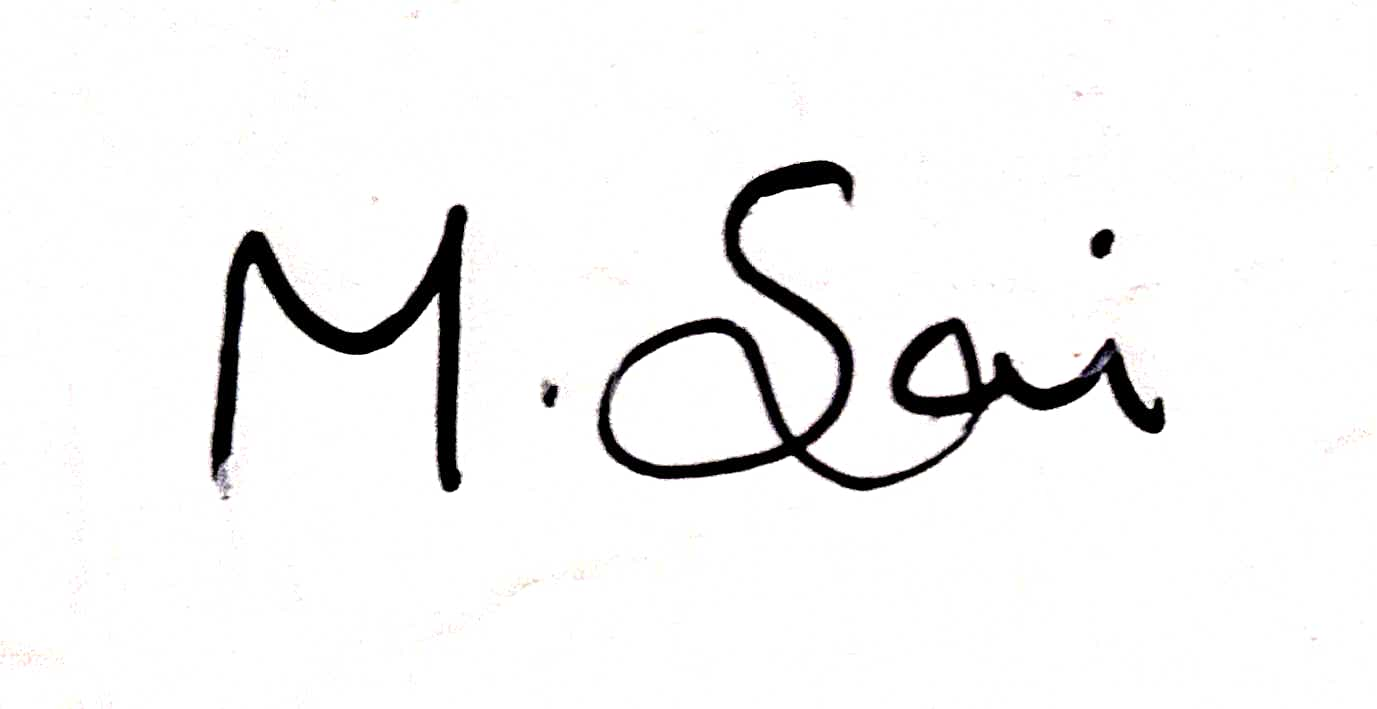 M. Sai